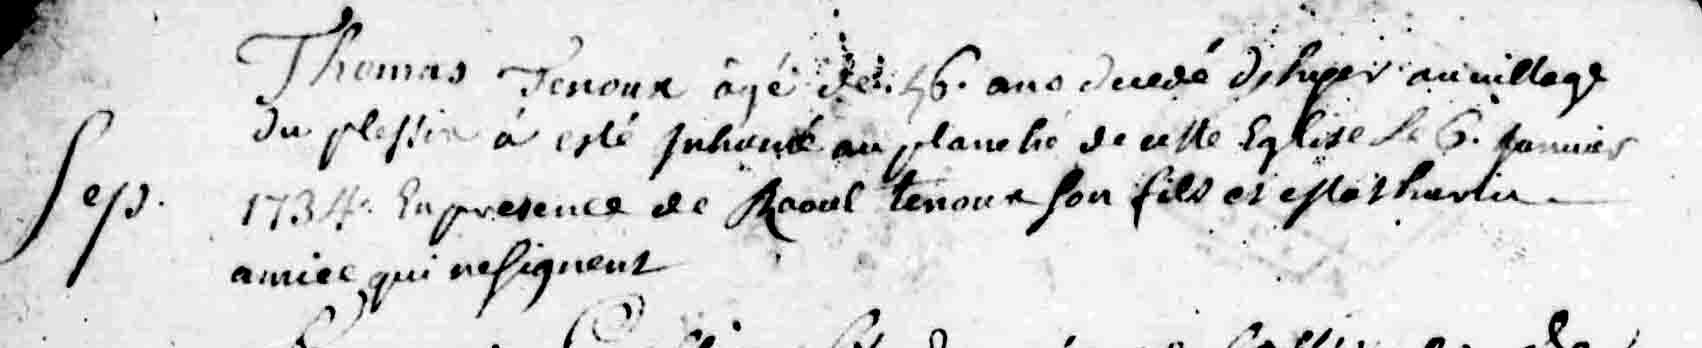 Thomas Tenoux âgé de 56. ans decedé d'hyer au village
du plessix à esté Inhumé au planché de cette Eglise le 6. Janvier
Sep. 1734. En presence de Raoul tenoux son fils et
amiee qui ne signent